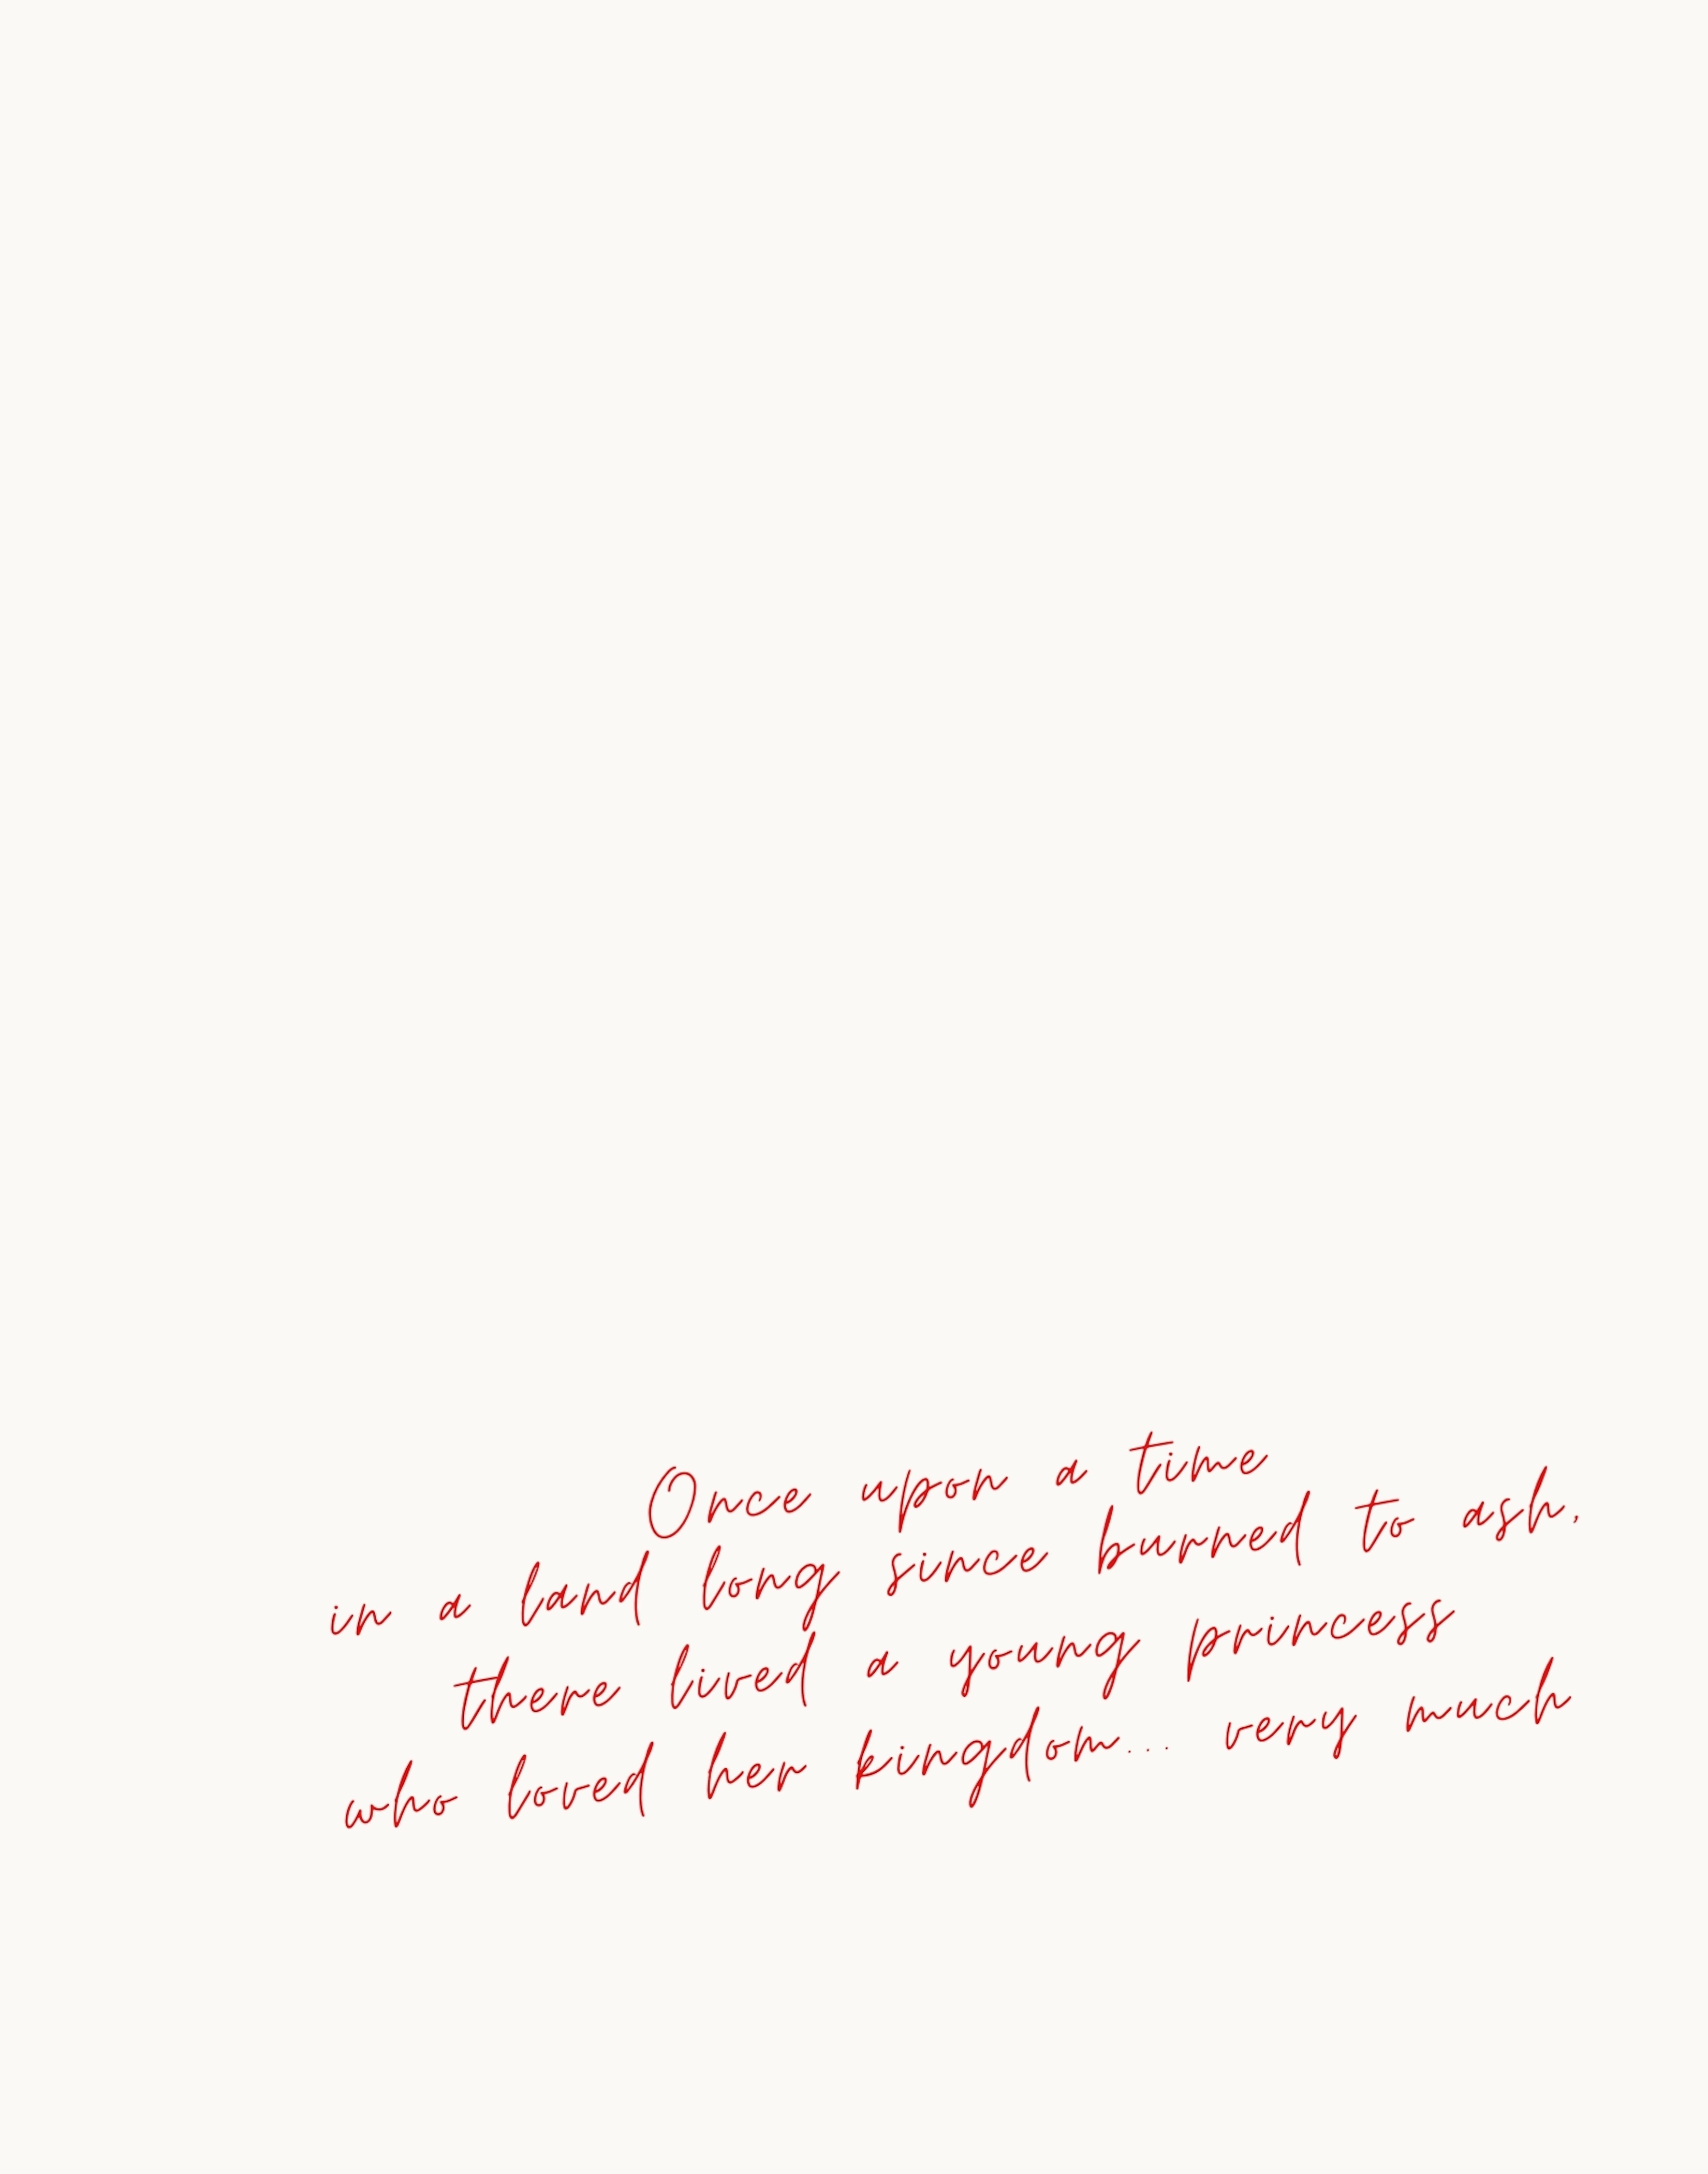 Once upon a time
in a land long since burned to ash,
there lived a young princess
who loved her kingdom... very much